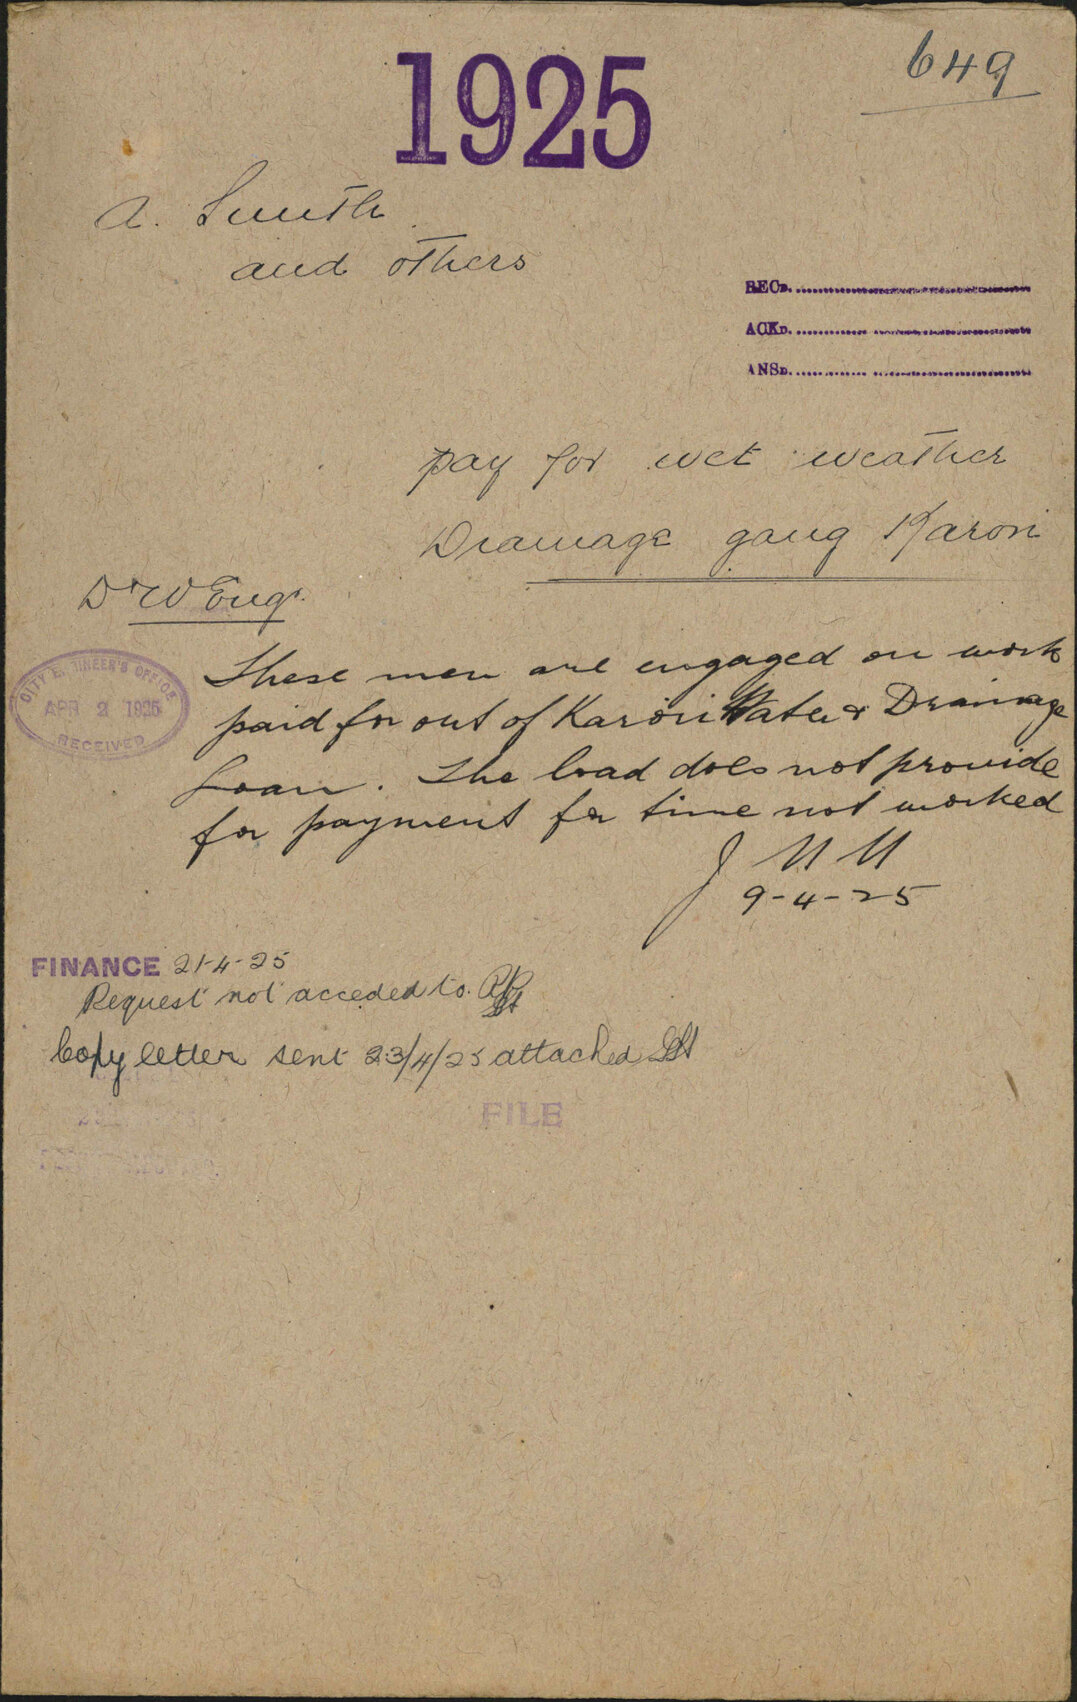 1925
649
A. Smith
and others
RECD.
ACKD.
ANSD.
pay for wet weather
Drainage gang Karori
D & W Engr.
CITY ENGINEER'S OFFICE
APR 2 1925
RECEIVED
These men are engaged on work
paid for out of Karori Water & Drainage
Loan. The load does not provide
for payment for time not worked
9-4-25
FINANCE 21-4-25
Request not acceded to.
Copy letter sent 23/4/25 attached
FILE